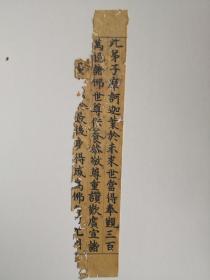 此弟子摩訶迦葉於未來世當得奉覲三百
萬億諸佛世尊供養恭敬尊重讚歎廣宣諸
最後身得成為佛